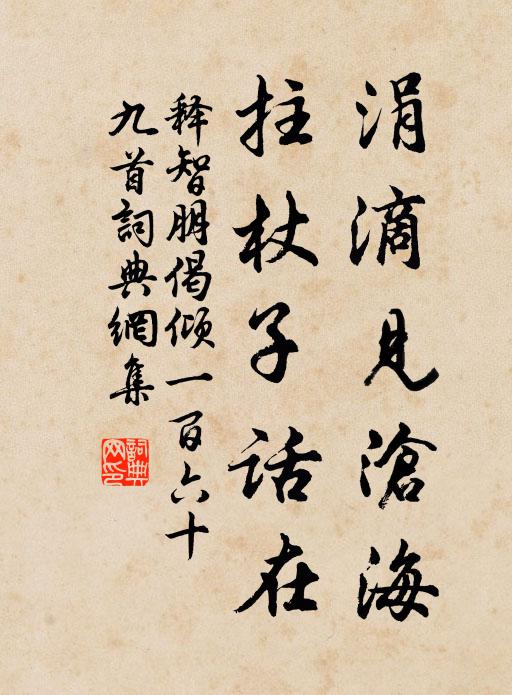 涓滴見滄海
拄杖子话在
释智朋偈倾一百六十
九首詞典網集
詞典网印